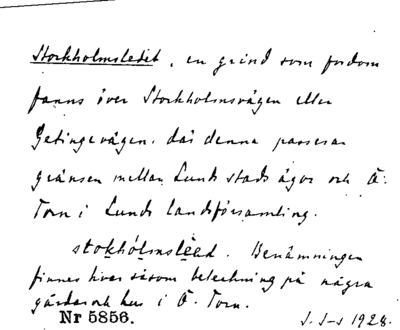 Stockholmsledet, en grind som fordom
fanns över Stockholmsvägen eller
Getingevägen, där denna passerar
gränsen mellan Lunds stads ägor och Ö.
Torn i Lunds landsförsamling.
stokhólmslèed. Benämningen
finnes kvar såsom beteckning på några
gårdar och hus i Ö. Torn.
Nr 5856.
1928.